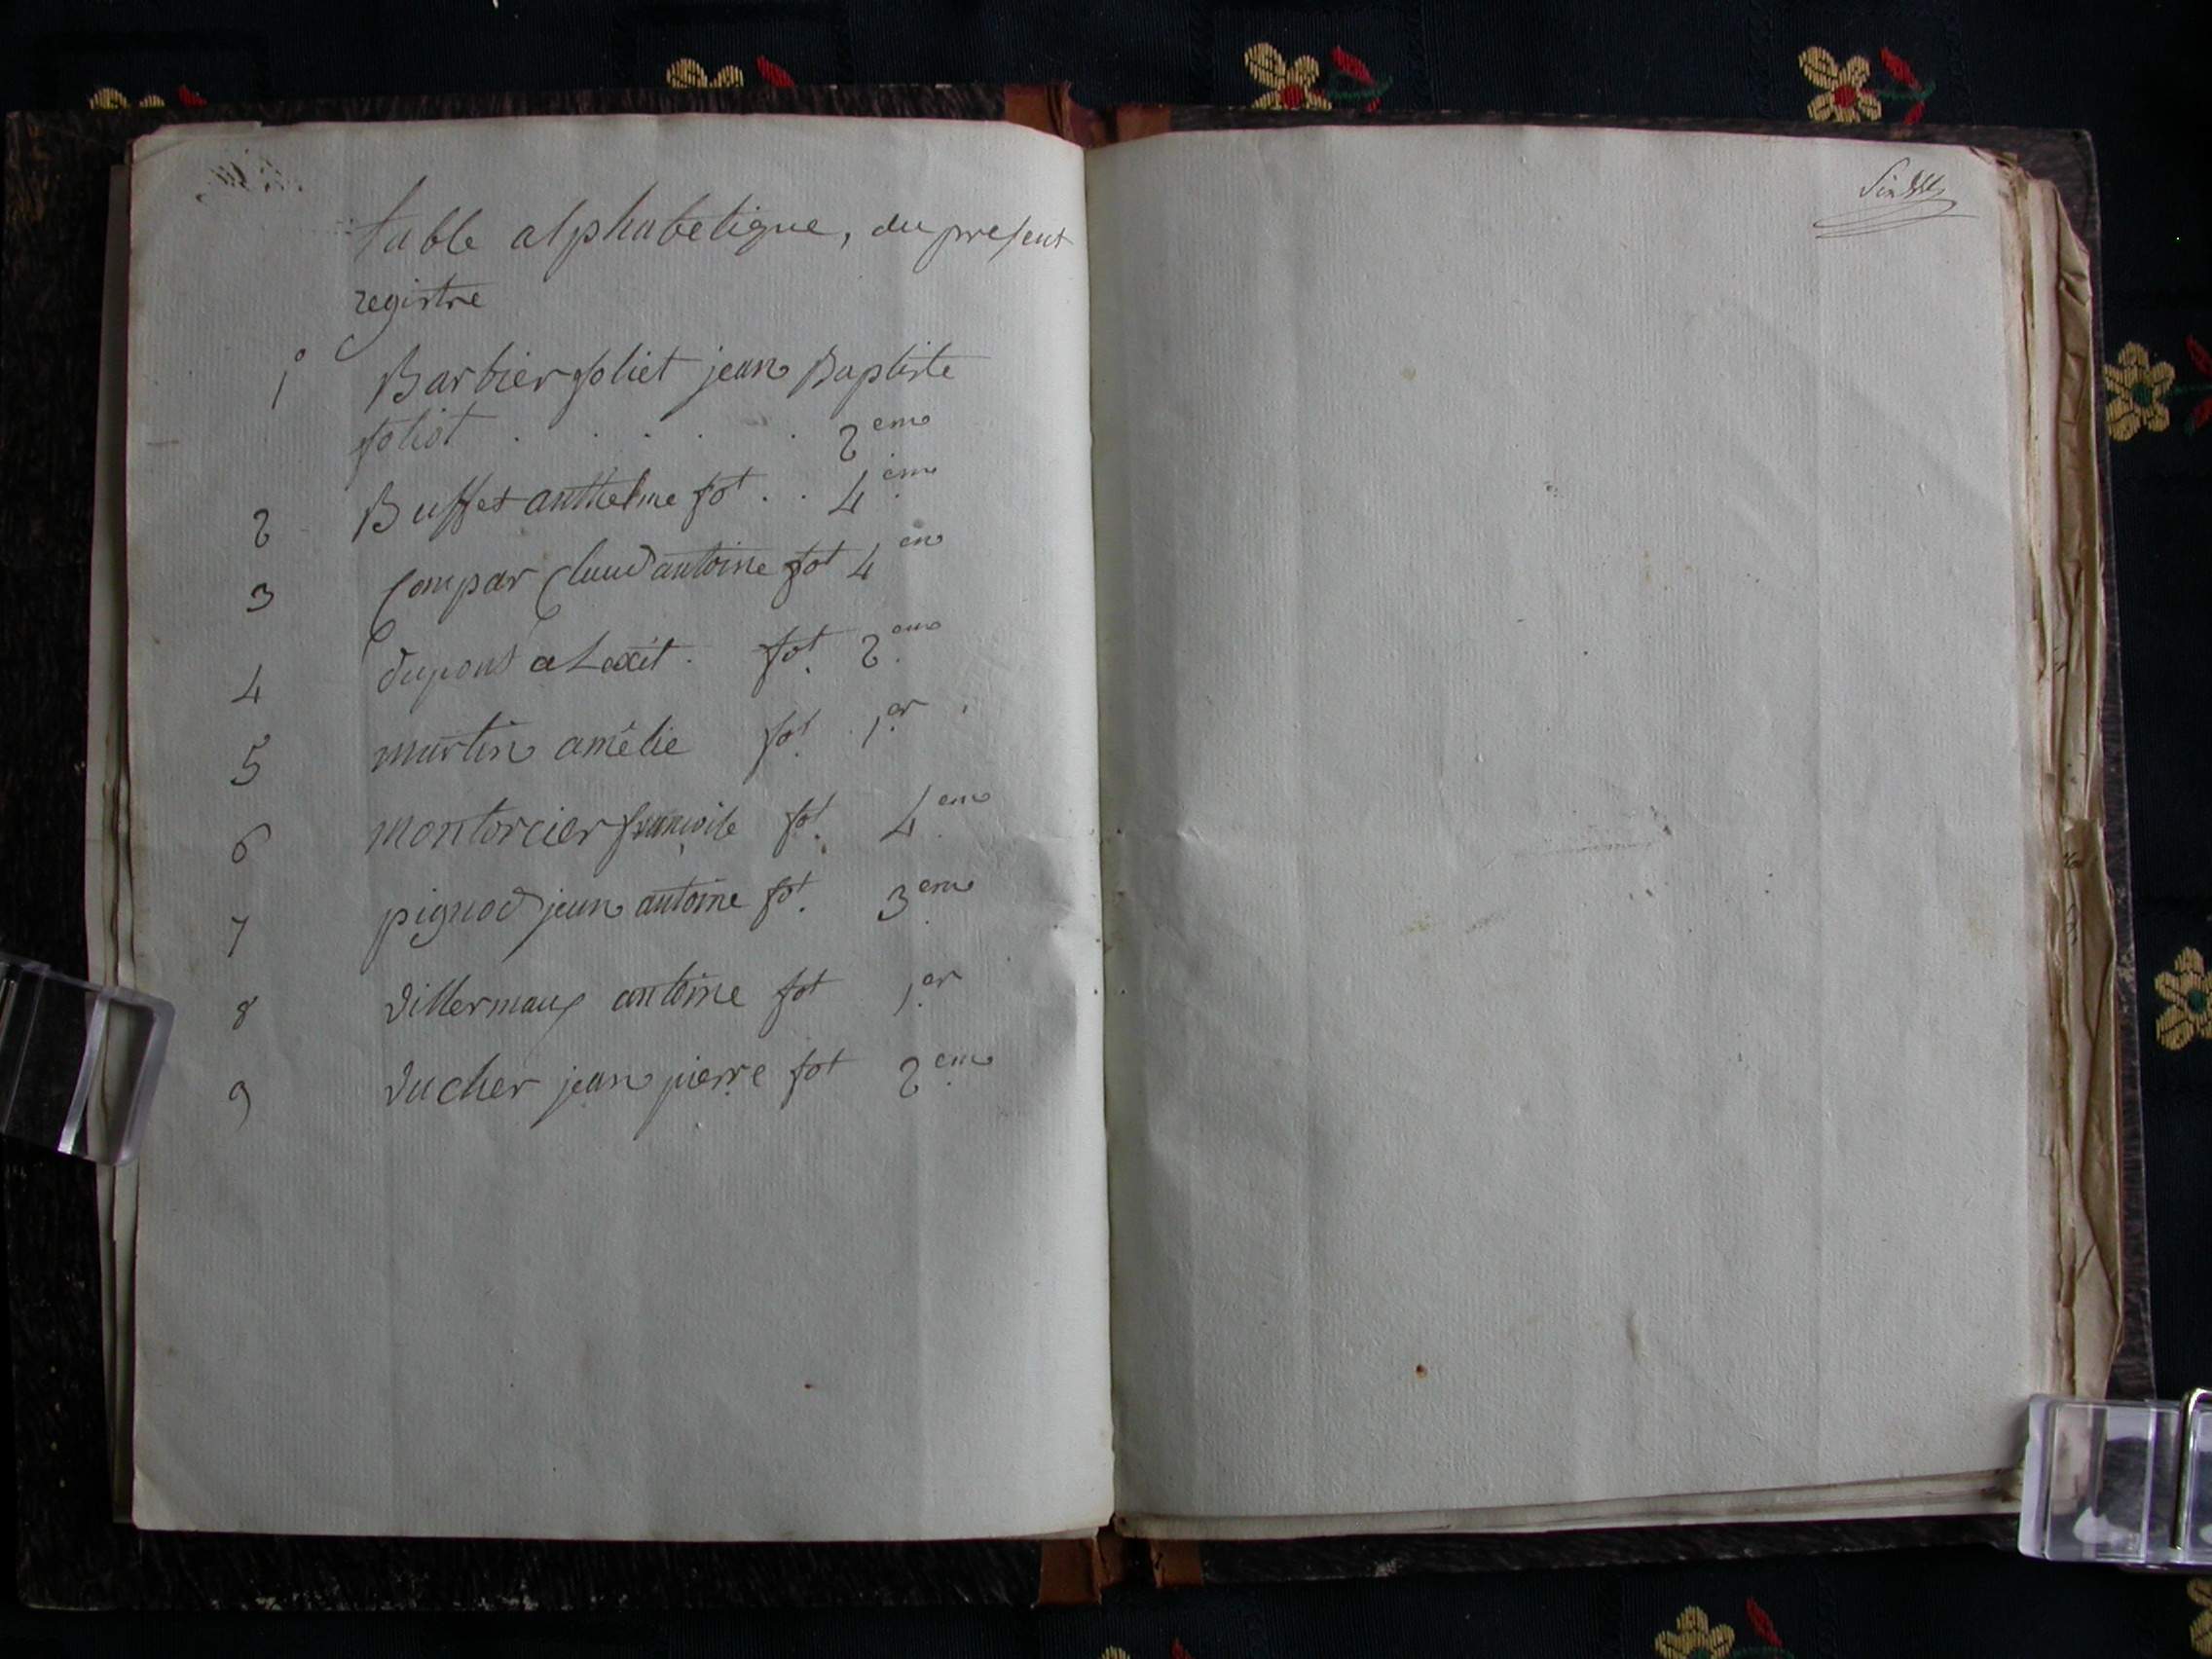 table alphabetique, du present
registre
1° Barbier foliet jean Baptiste
foliot . . . . . 2eme
2 Buffet anthelme fot . . 4eme
3 Compar Claud antoine fot 4eme
4 dupont alexit . fot 2eme
5 martin amélie fot 1er
6 montorcier françoise fot 4eme
7 pignod jean antoine fot 3eme
8 Villermaux antoine fot 1er
9 Vucher jean pierre fot 2eme